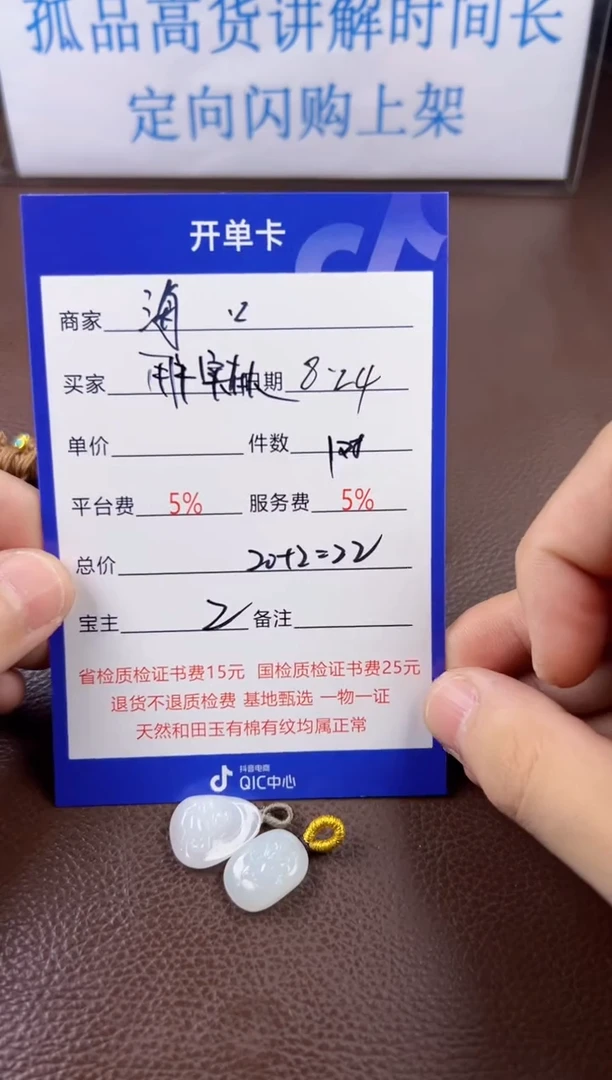 孤品高货讲解时间长
定向闪购上架
开单卡
商家 海
买家 日期 8.24
单价 件数
平台费 5% 服务费 5%
总价 20+2=22
宝主 2 备注
省检质检证书费15元 国检质检证书费25元
退货不退质检费 基地甄选 一物一证
天然和田玉有棉有纹均属正常
抖音电商
QIC中心